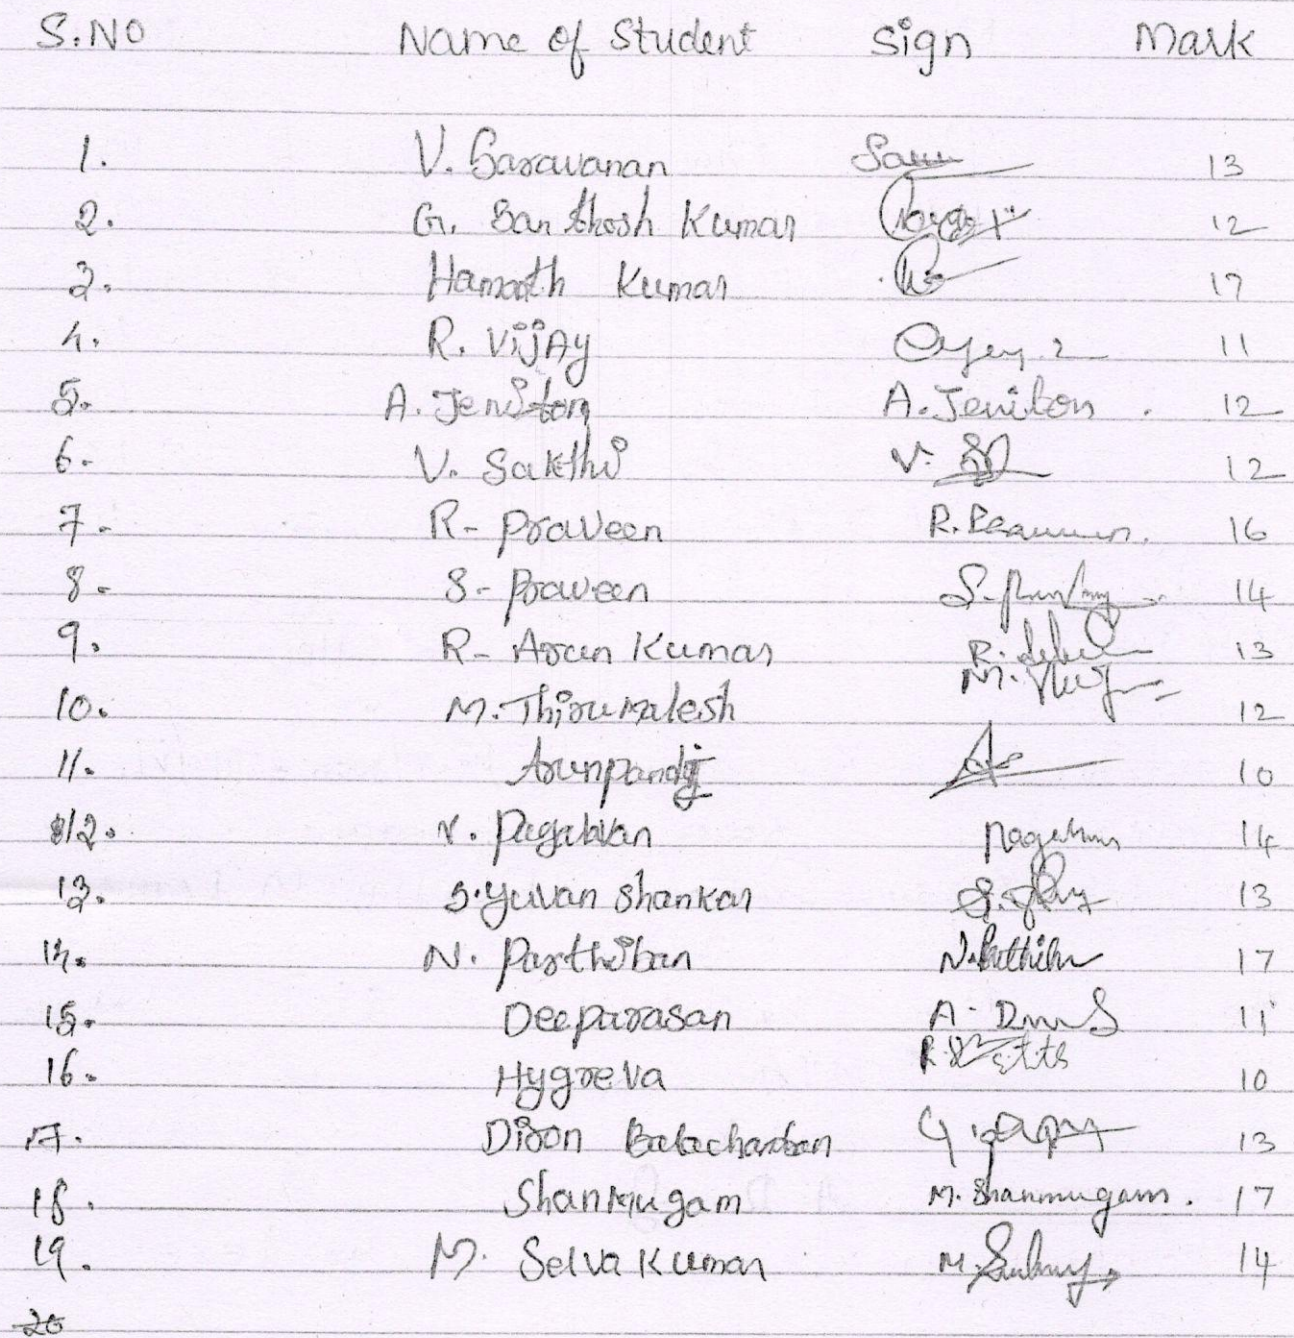 S.NO Name of Student Sign Mark
1. V. Saravanan 13
2. G. Santhosh Kumar 12
3. Kumar 17
4. R. VijAy 11
5. A. Jeniston A. Jeniton 12
6. V. Sakthi V. 12
7. R- Praveen R. 16
8. S- Praveen S. 14
9. R- Arun Kumar R. 13
10. M. Thirumalesh M. 12
11. Arunpandij 10
12. V. Pagalavan 14
13. S. Yuvan Shankar 13
14. N. Parthiban N. Parthiban 17
15. Deeparasan A. 11
16. Hygreva 10
17. 13
18. Shanmugam M. Shanmugam. 17
19. M. Selva Kumar M. 14
20